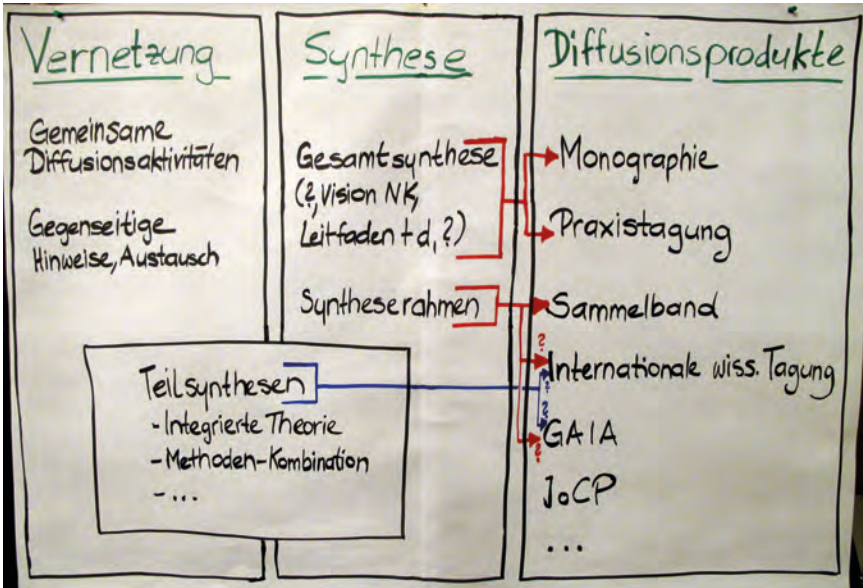 Vernetzung
Gemeinsame
Diffusionsaktivitäten
Gegenseitige
Hinweise, Austausch
Synthese
Gesamtsynthese
(?, Vision NK,
Leitfaden td, ?)
Syntheserahmen
Teilsynthesen
- Integrierte Theorie
- Methoden-Kombination
- ...
Diffusionsprodukte
Monographie
Praxistagung
Sammelband
?
Internationale wiss. Tagung
?
?
GAIA
?
JoCP
...